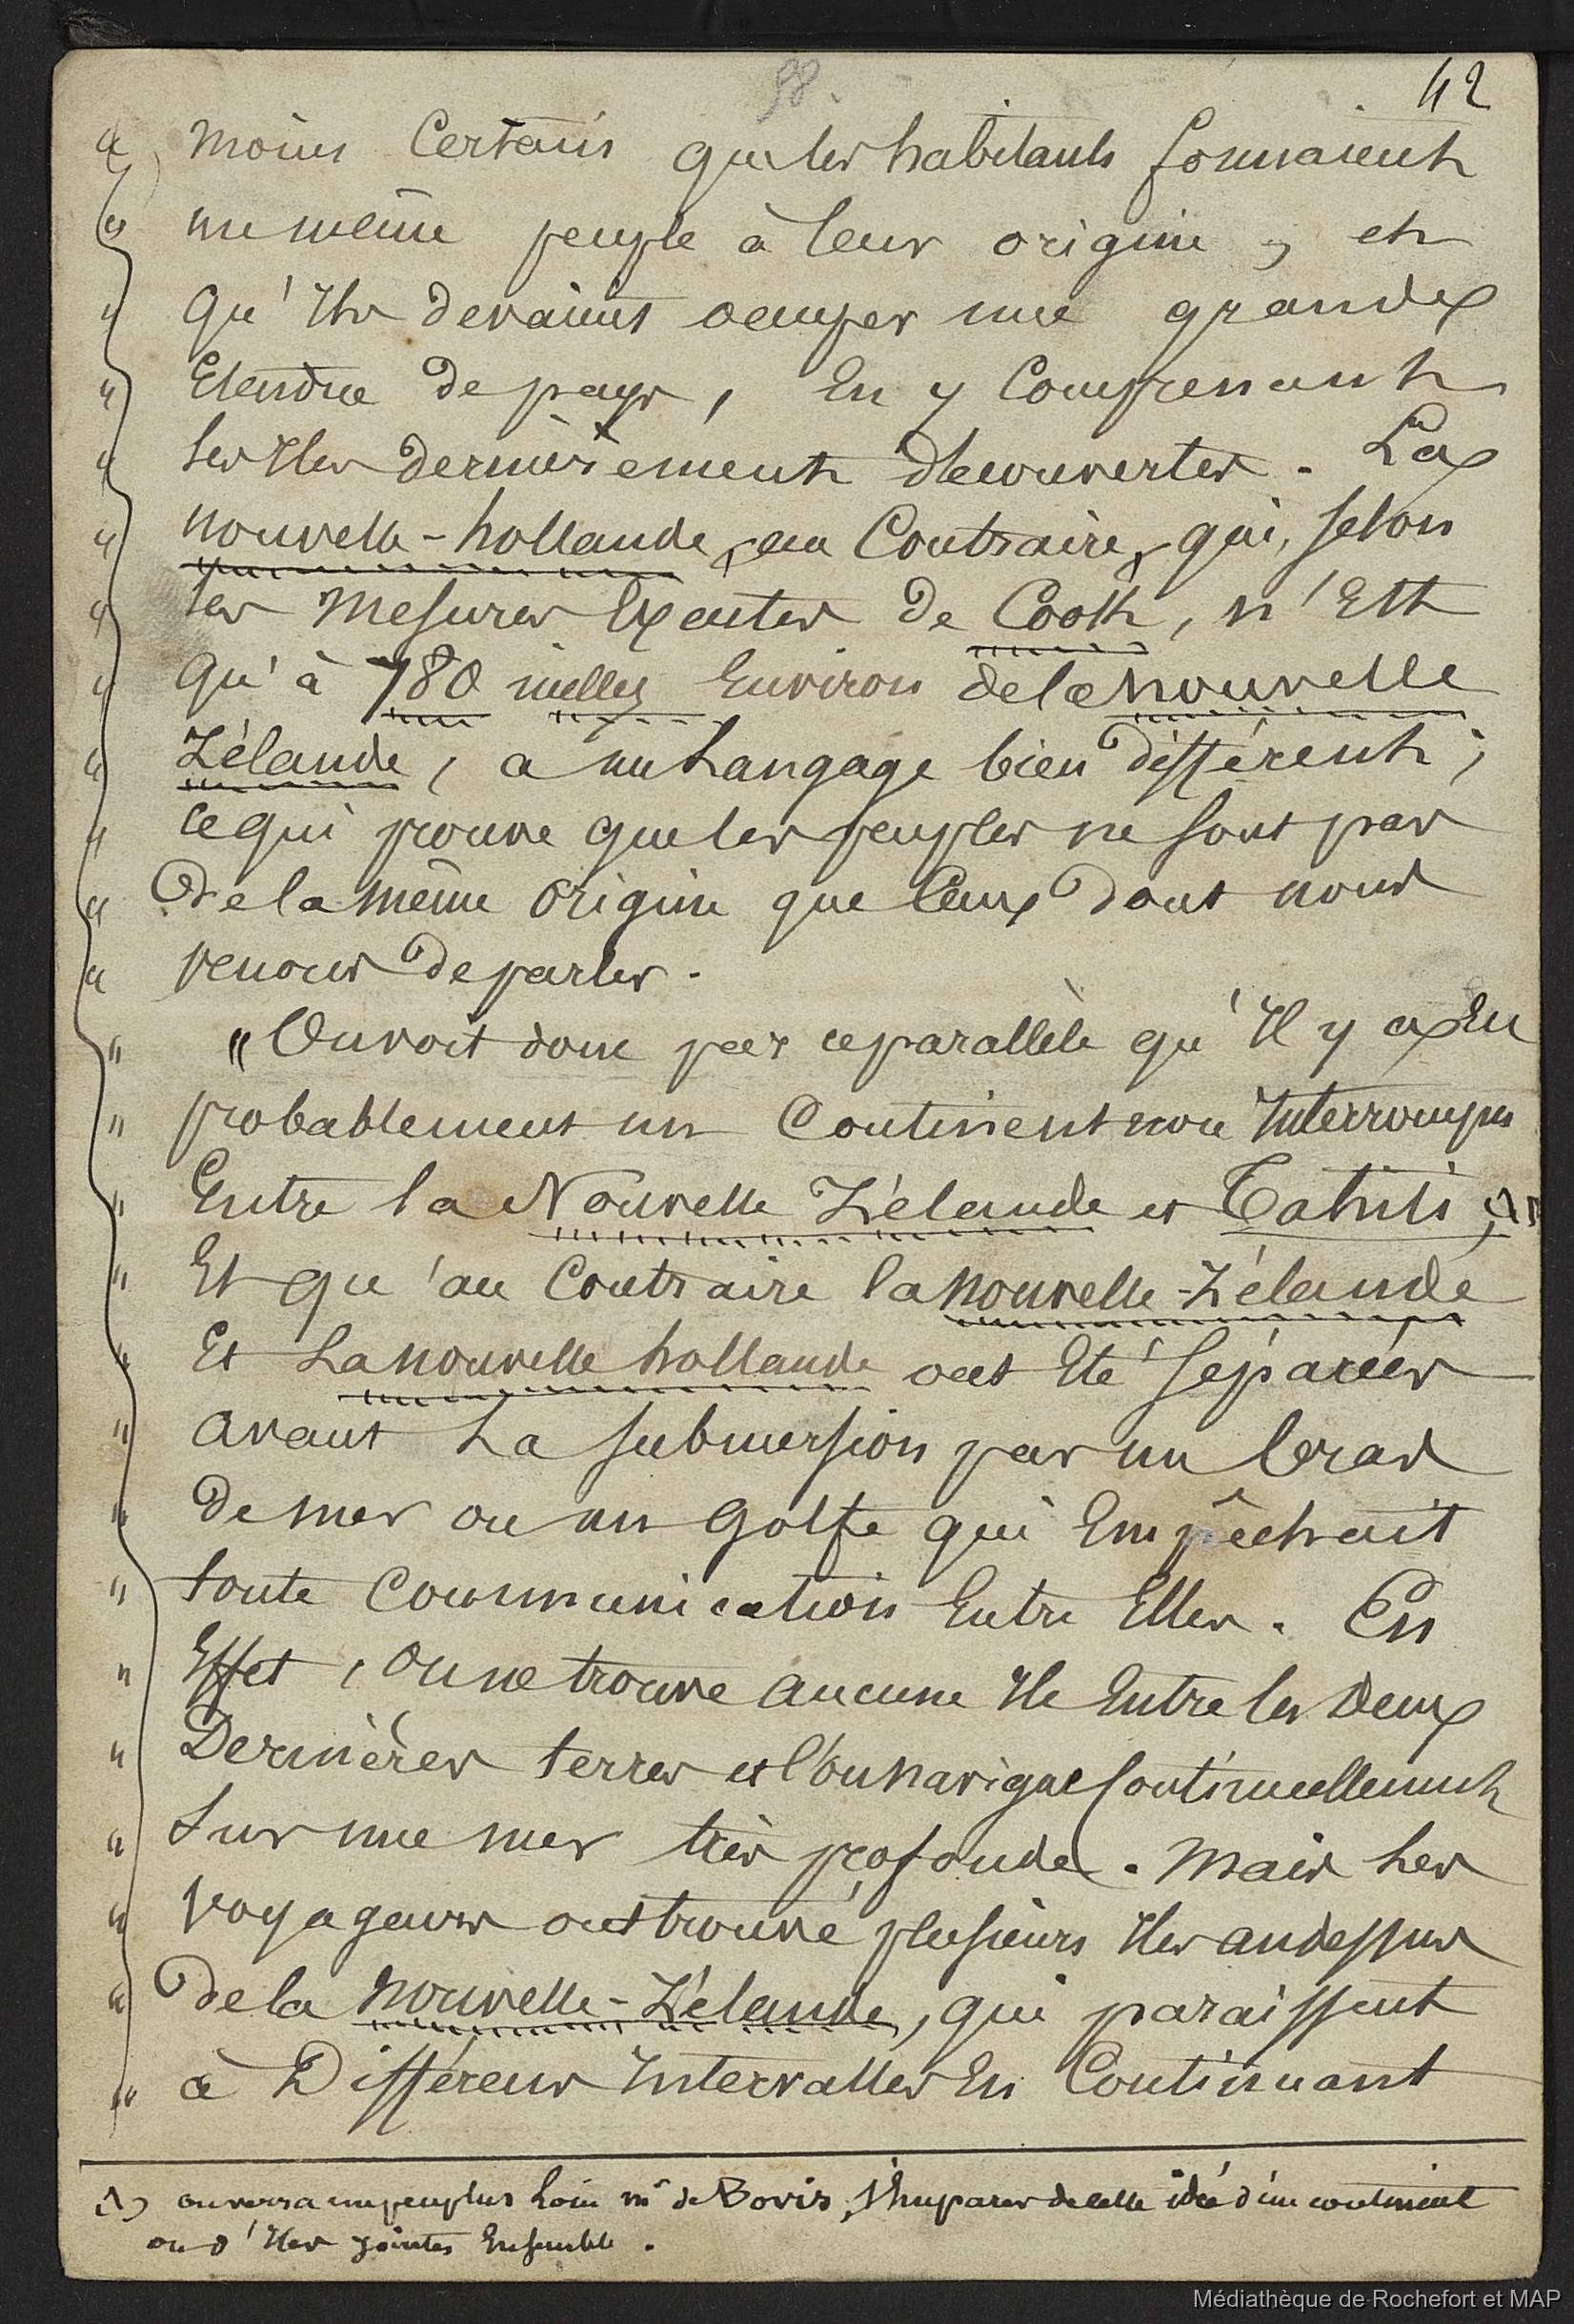 98.
42
" moins Certains que les habitants formaient
" un même peuple à leur origine, et
" qu'Ils devaient occuper une grande
" Etendue de pays, En y Comprenant
" les Iles dernièrement découvertes. La
" nouvelle-hollande, au Contraire, qui, selon
" les mesures Exactes de Cook, n'Est
" qu'à 780 milles Environ de la nouvelle
" Zélande, a un Langage bien différent;
" ce qui prouve que les peuples ne sont pas
" De la même Origine que Ceux dont nous
" venons de parler.
" "On voit donc par ce parallèle qu'Il y a Eu
" probablement un Continent non Interrompu
" Entre la Nouvelle Zélande et Tahiti (1)
" Et qu'au Contraire la nouvelle-Zélande
" Et La nouvelle hollande ont Eté séparées
" avant La submersion par un bras
" De mer ou un golfe qui Empêchait
" toute Communication Entre Elles. En
" Effet, On ne trouve aucune Ile Entre les Deux
" Dernières terres et l'on navigue Continuellement
" Sur une mer très profonde. Mais Les
" voyageurs ont trouvé plusieurs Iles au dessus
" De la nouvelle-Zélande, qui paraissent
" à Différens Intervalles En Continuant
(1) on verra un peu plus Loin mr de Bovis, s'Emparer de cette idée d'un continent
ou d'Iles jointes Ensemble.
Médiathèque de Rochefort et MAP